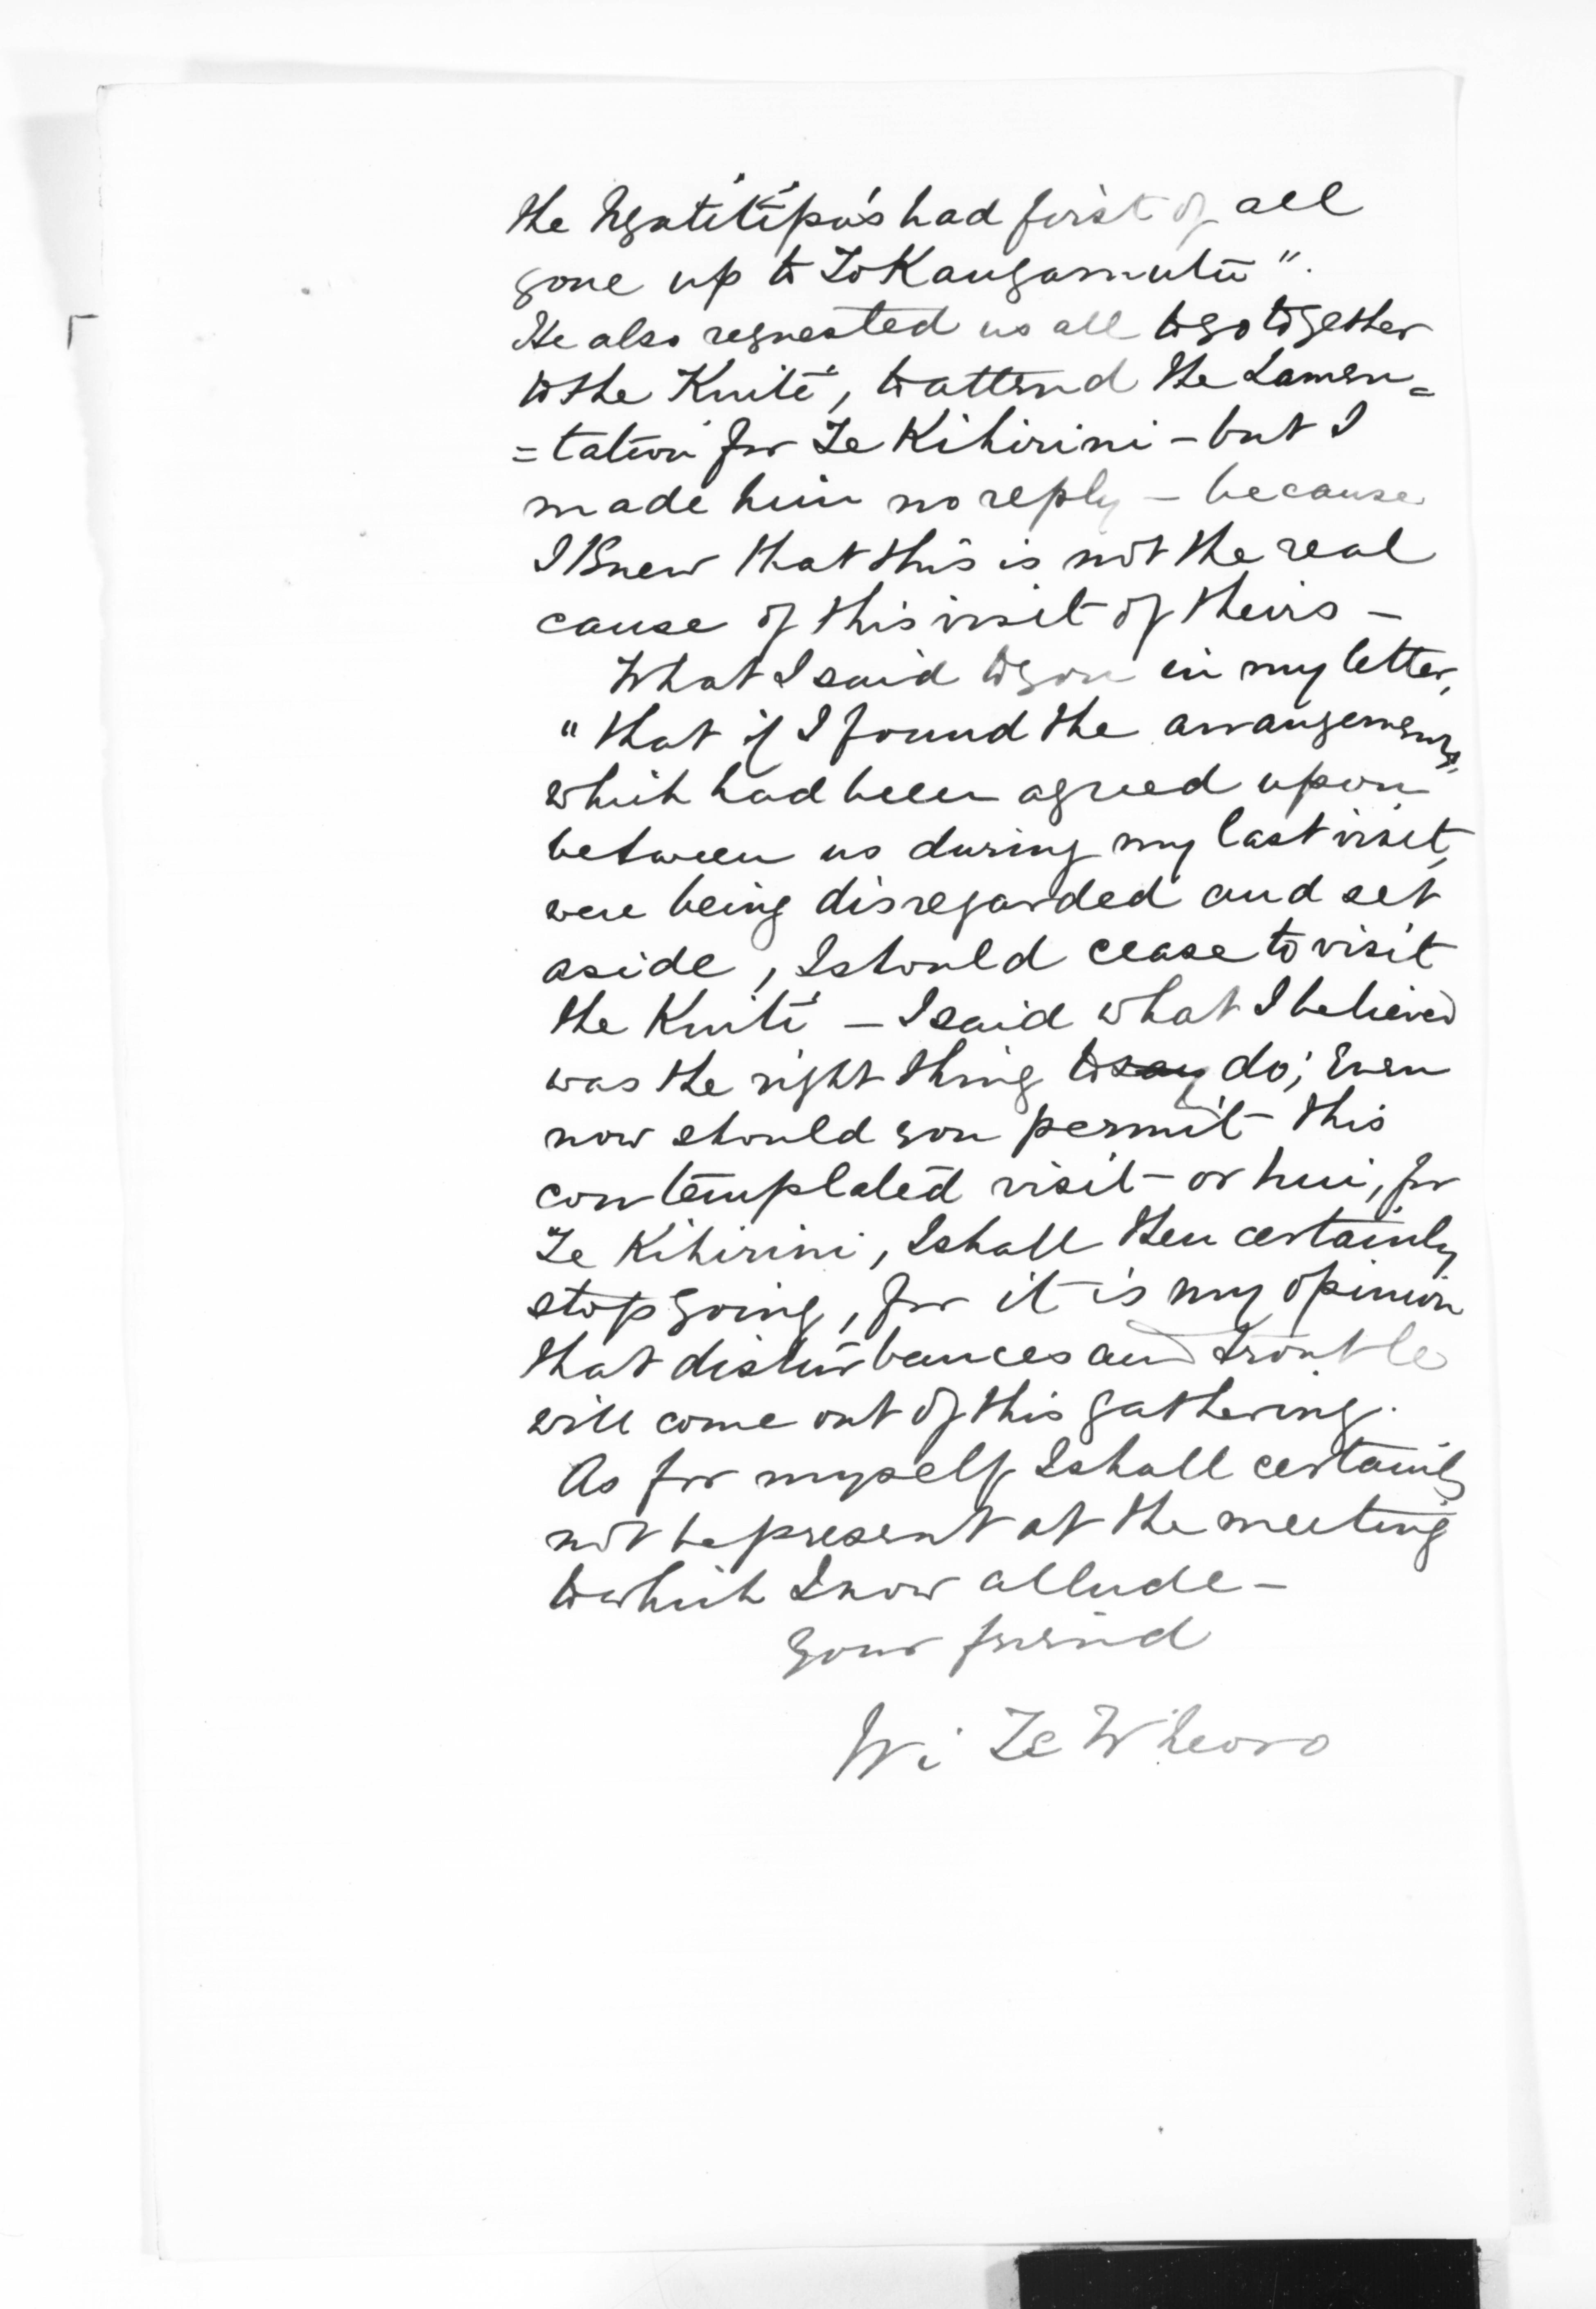 the Ngatitipa's had first of all
gone up to To Kangamutu".
He also requested us all to go together
to the Kuiti, to attend the Lamen=
=tation for Te Kihirini - but I
made him no reply - because
I knew that this is not the real
cause of this visit of theirs -
What I said to you in my letter,
"that if I found the arrangements,
which had been agreed upon
between us during my last visit,
were being disregarded and set
aside, I should cease to visit
the Kuiti - I said what I believed
was the right thing to say do; Even
now should you permit this
contemplated visit - or hui, for
Te Kihirini, I shall then certainly
stop going, for it is my opinion
that disturbances and trouble
will come out of this gathering.
As for myself I shall certainly
not be present at the meeting
to which I now allude -
Your friend
Wi Te Wheoro